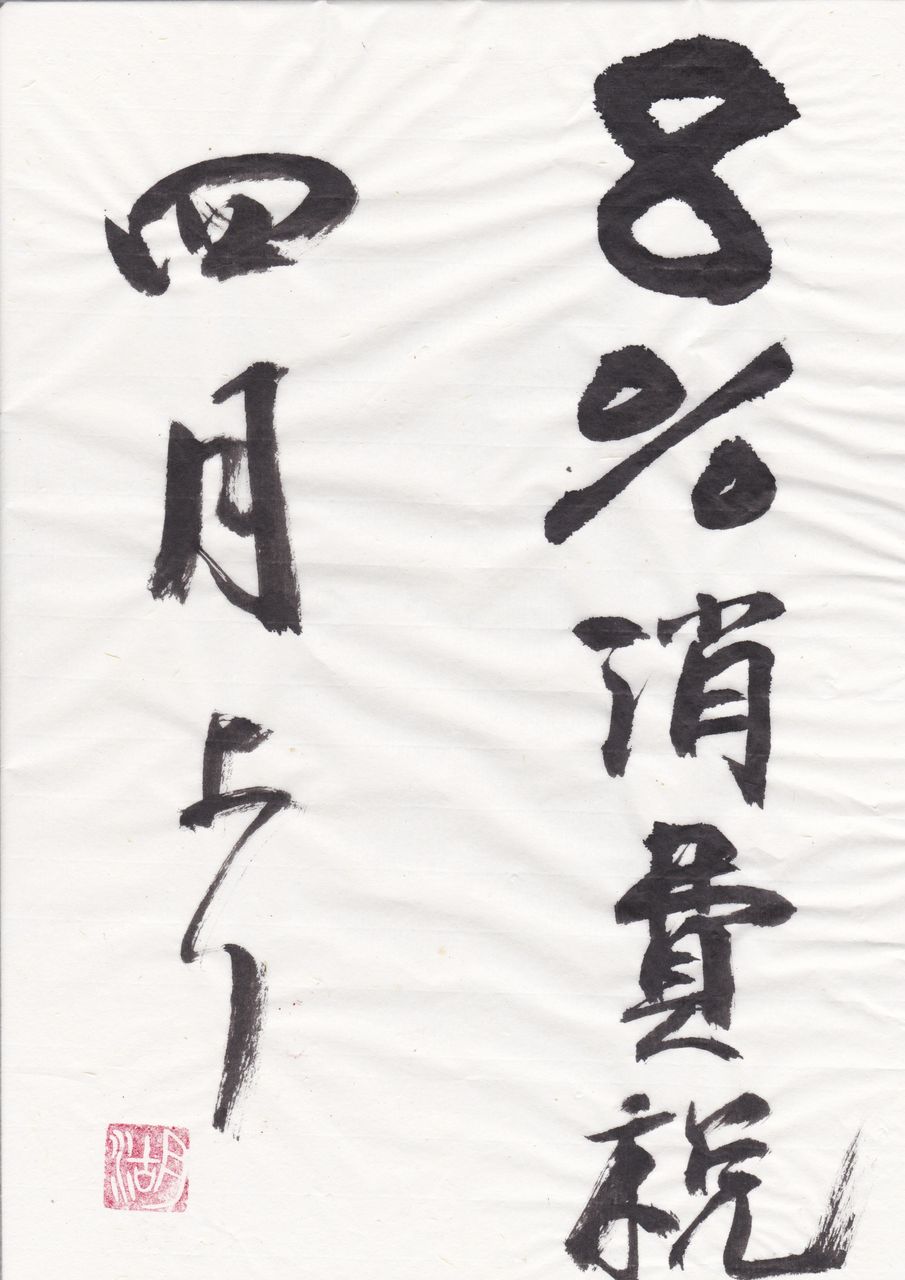 8%消費税
四月より
湖